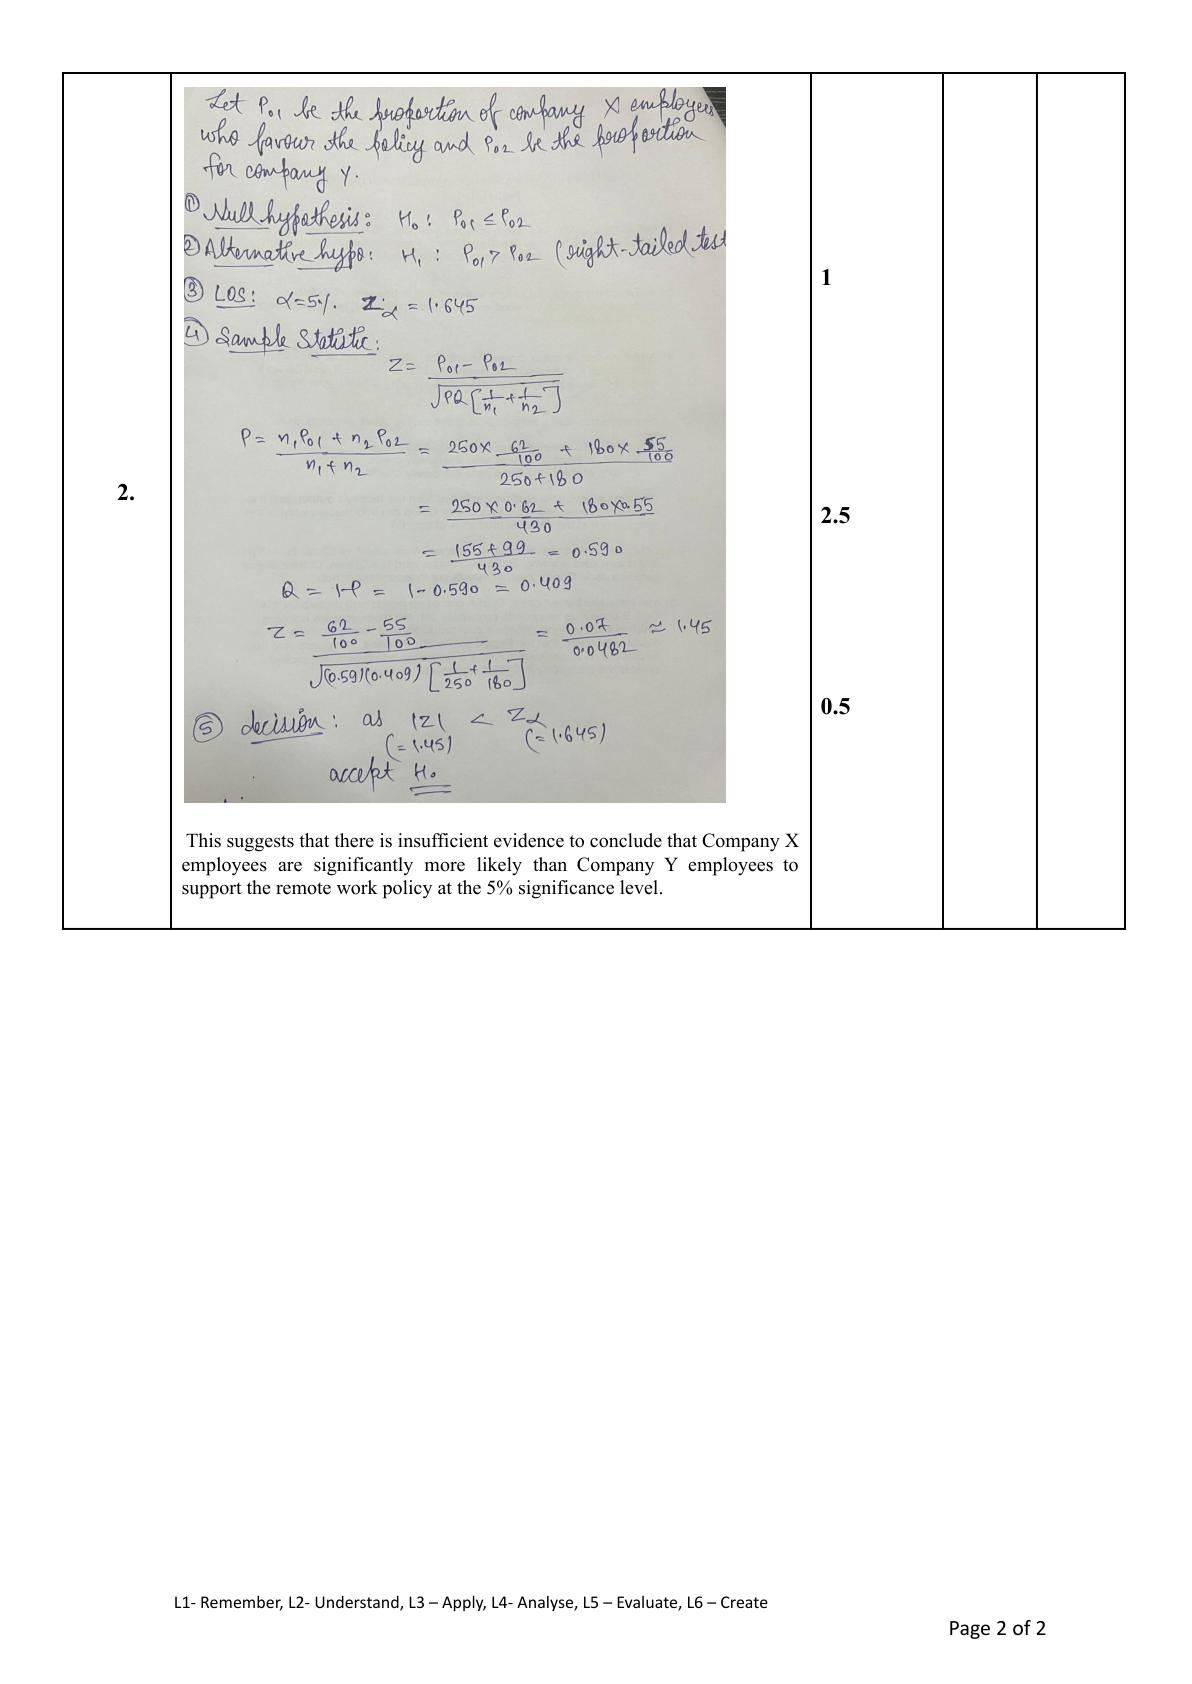 Let P₀₁ be the proportion of company X employees
who favour the policy and P₀₂ be the proportion
for company Y.
① Null hypothesis: H₀ : P₀₁ ≤ P₀₂
② Alternative hypo: H₁ : P₀₁ > P₀₂ (right-tailed test
1
③ LOS: α=5%. Zα = 1.645
④ Sample Statistic:
Z = P₀₁ - P₀₂ / √PQ [1/n₁ + 1/n₂]
P = n₁P₀₁ + n₂P₀₂ / n₁ + n₂ = 250 × 62/100 + 180 × 55/100 / 250+180
2.
= 250 × 0.62 + 180 × 0.55 / 430
2.5
= 155 + 99 / 430 = 0.590
Q = 1-P = 1 - 0.590 = 0.409
Z = 62/100 - 55/100 / √(0.59)(0.409) [1/250 + 1/180] = 0.07 / 0.0482 ≈ 1.45
0.5
⑤ decision: as |Z| < Zα
(= 1.45) (= 1.645)
accept H₀
This suggests that there is insufficient evidence to conclude that Company X
employees are significantly more likely than Company Y employees to
support the remote work policy at the 5% significance level.
L1- Remember, L2- Understand, L3 – Apply, L4- Analyse, L5 – Evaluate, L6 – Create
Page 2 of 2